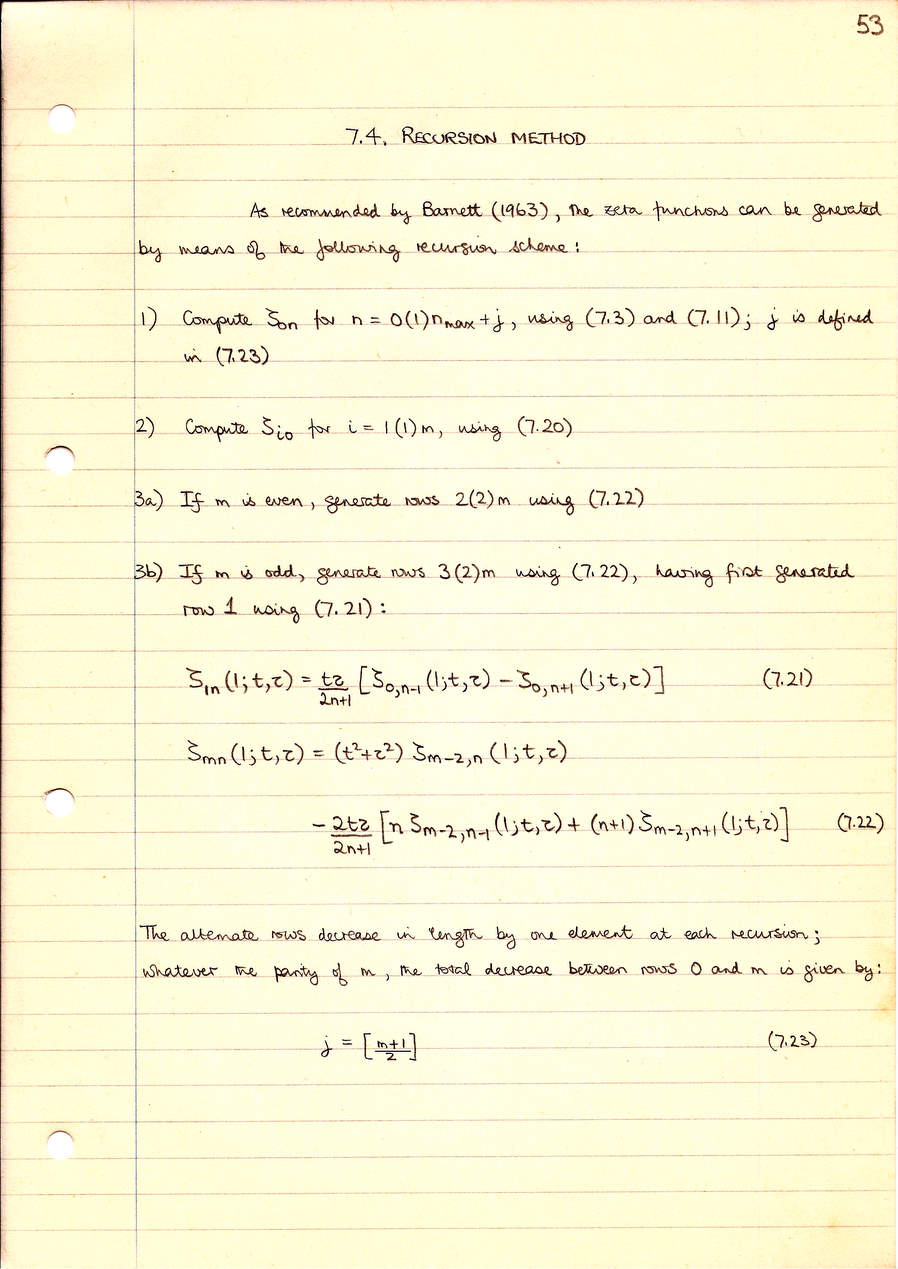 53
7.4. RECURSION METHOD
As recommended by Barnett (1963), the zeta functions can be generated
by means of the following recursion scheme:
1) Compute ζ₀ₙ for n = 0(1)nₘₐₓ+j, using (7.3) and (7.11); j is defined
in (7.23)
2) Compute ζᵢ₀ for i = 1(1)m, using (7.20)
3a) If m is even, generate rows 2(2)m using (7.22)
3b) If m is odd, generate rows 3(2)m using (7.22), having first generated
row 1 using (7.21):
ζ₁ₙ(1;t,τ) = tτ/(2n+1) [ζ₀,ₙ₋₁(1;t,τ) − ζ₀,ₙ₊₁(1;t,τ)] (7.21)
ζₘₙ(1;t,τ) = (t²+τ²) ζₘ₋₂,ₙ(1;t,τ)
− 2tτ/(2n+1) [n ζₘ₋₂,ₙ₋₁(1;t,τ) + (n+1) ζₘ₋₂,ₙ₊₁(1;t,τ)] (7.22)
The alternate rows decrease in length by one element at each recursion;
whatever the parity of m, the total decrease between rows 0 and m is given by:
j = [(m+1)/2] (7.23)